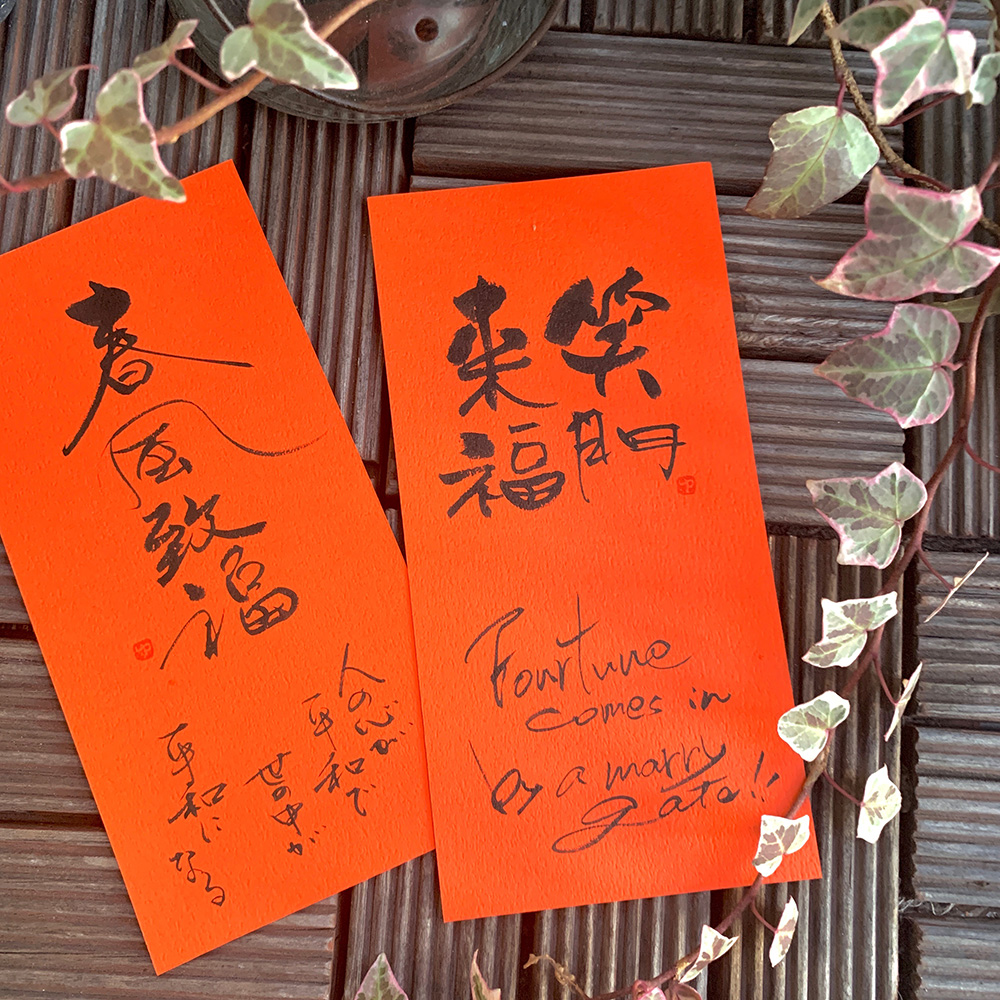 春風致福
人の心が
平和で
世の中が
平和に
なる
笑門
来福
Fourtune
comes in
by a marry
gate!!